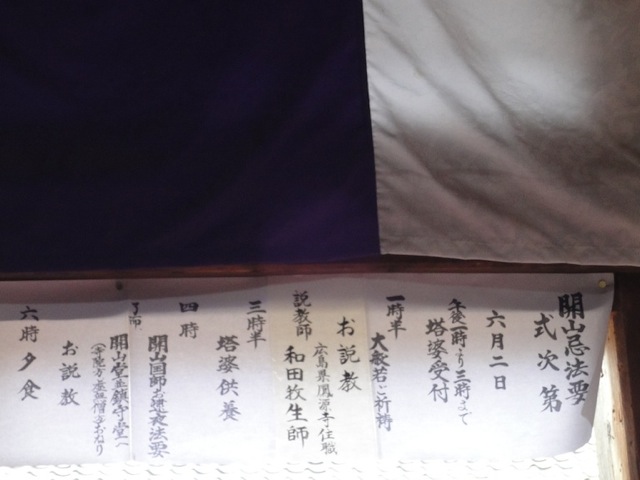 開山忌法要
式次第
六月二日
午後一時より三時まで
塔婆受付
一時半
大般若ご祈祷
お説教
広島県鳳源寺住職
説教師 和田牧生師
三時半
塔婆供養
四時
開山国師お逮夜法要
了而
開山堂並鎮守堂へ
お説教
六時夕食